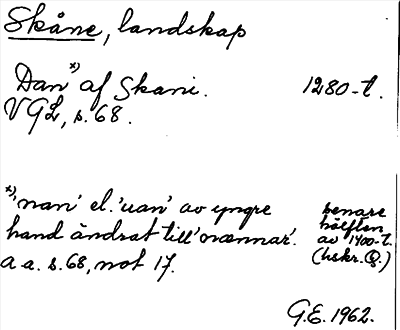 Skåne, landskap
Dan *) af Skani. 1280-t.
VGL, s. 68.
*) 'nan' el. 'uan' av yngre
hand ändrat till 'mænnær'.
a a. s. 68, not 17.
senare
hälften
av 1400-t.
(hskr. B.)
G.E. 1962.